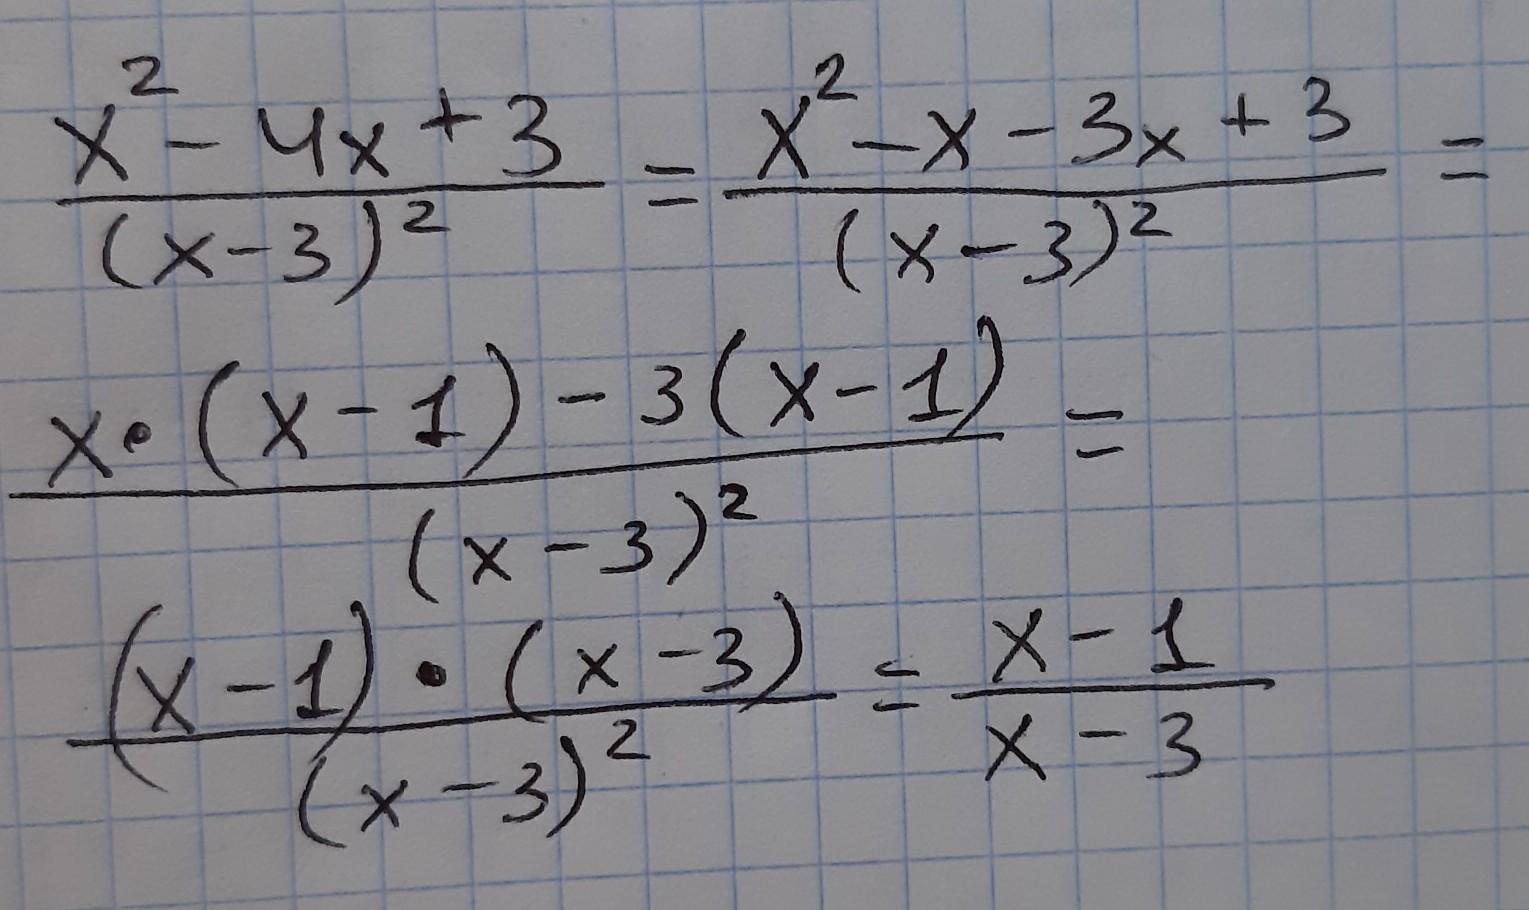 x² - 4x + 3 / (x-3)² = x² - x - 3x + 3 / (x-3)² =
x•(x-1) - 3(x-1) / (x-3)² =
(x-1)•(x-3) / (x-3)² = x-1 / x-3